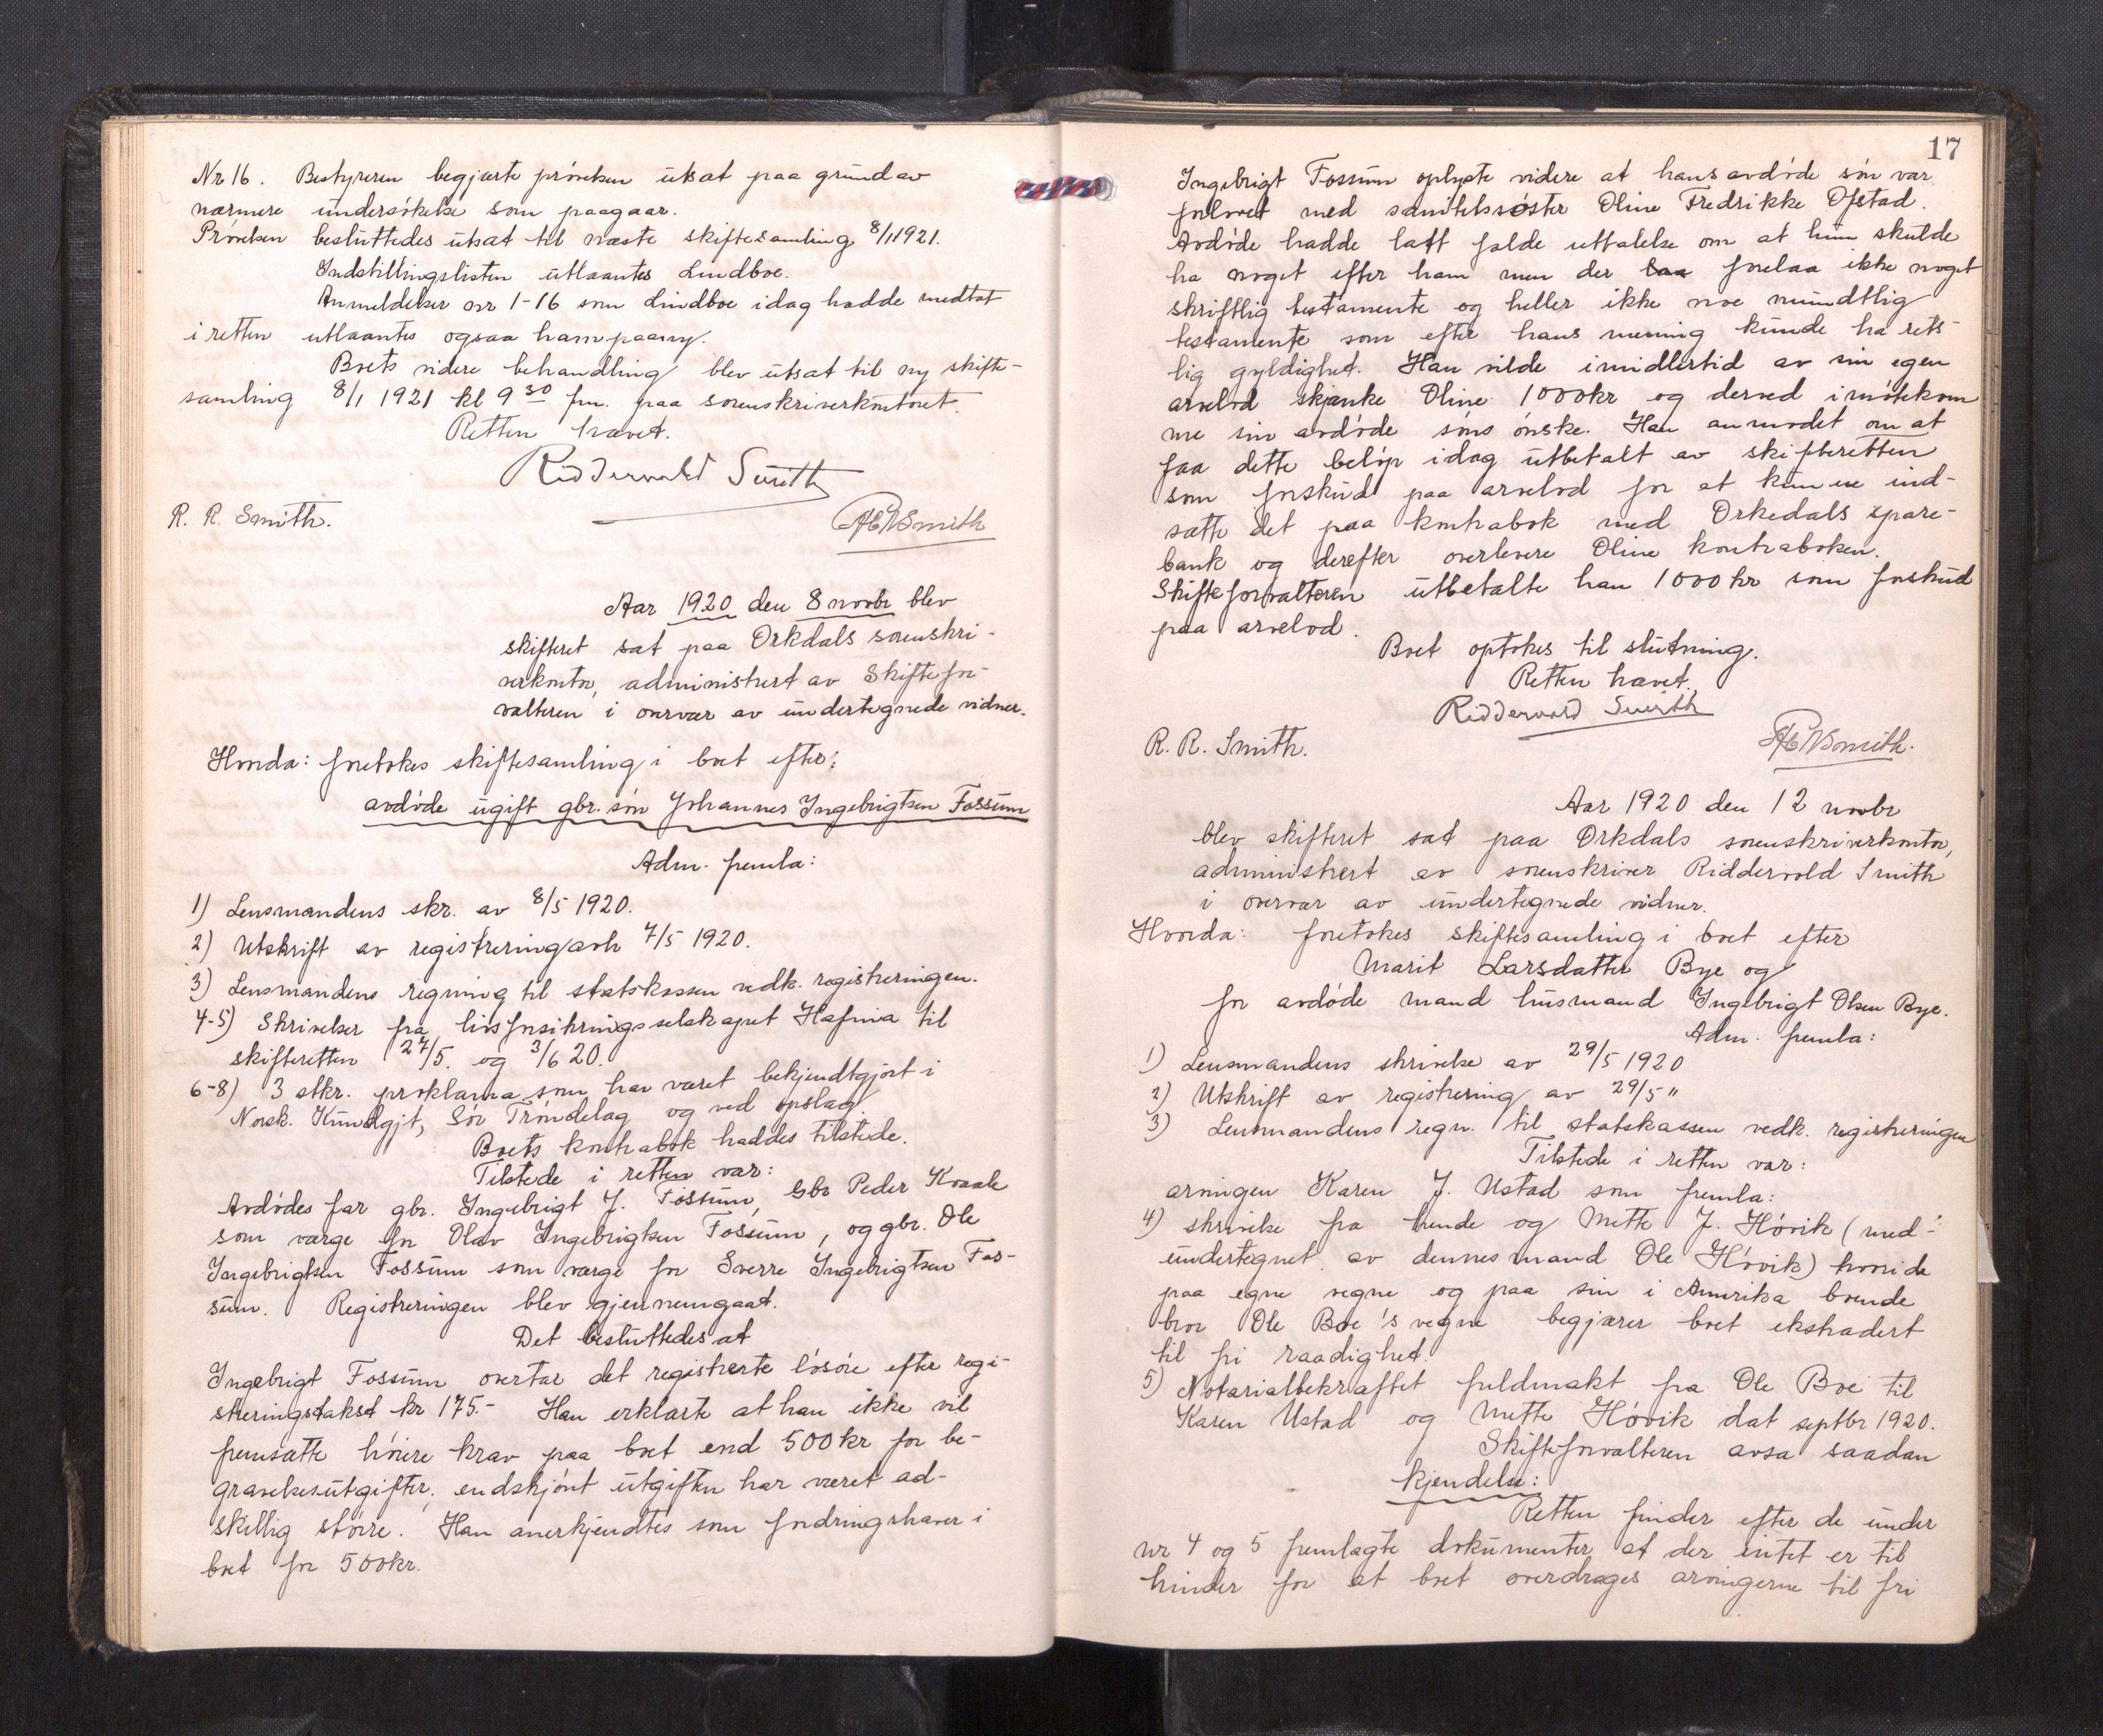 Nr 16. Bestyreren begjærte prøvelsen utsat paa grund av
nærmere undersøkelse som paagaar.
Prøvelsen besluttedes utsat til næste skiftesamling 8/1 1921.
Indstillingslisten utlaantes Lindboe.
Anmeldelser nr 1-16 som Lindboe idag hadde medtat
i retten utlaantes ogsaa ham paany.
Boets videre behandling blev utsat til ny skifte-
samling 8/1 1921 kl 9 30 fm. paa sorenskriverkontoret.
Retten hævet.
Riddervold Smith
R. R. Smith.
Smith
Aar 1920 den 8 novbr blev
skifteret sat paa Orkdals sorenskri-
verkontor, administrert av Skiftefor-
valteren i overvær av undertegnede vidner.
Hvorda: foretokes skiftesamling i boet efter:
avdøde ugift gbr. søn Johannes Ingebrigtsen Fossum
Adm. fremla:
1) Lensmandens skr. av 8/5 1920.
2) Utskrift av registreringavh 7/5 1920.
3) Lensmandens regning til statskassen vedk. registreringen.
4-5) Skrivelser fra livsforsikringsselskapet Hafnia til
skifteretten 27/5. og 3/6 20.
6-8) 3 stkr. proklama som har været bekjendtgjort i
Norsk. Kundgjt, Sør Trøndelag og ved opslag.
Boets kontrabok haddes tilstede.
Tilstede i retten var:
Avdødes far gbr. Ingebrigt J. Fossum, Gbr Peder Kvaale
som værge for Olav Ingebrigtsen Fossum, og gbr. Ole
Ingebrigtsen Fossum som værge for Sverre Ingebrigtsen Fos-
sum. Registreringen blev gjennemgaat.
Det besluttedes at
Ingebrigt Fossum overtar det registrerte løsøre efter regi-
streringstakst kr 175.- Han erklærte at han ikke vil
fremsætte høiere krav paa boet end 500 kr for be-
gravelsesutgifter, endskjønt utgiften har været ad-
skillig større. Han anerkjendtes som fordringshaver i
boet for 500 kr.
17
Ingebrigt Fossum oplyste videre at hans avdøde søn var
forlovet med sanitetssøster Oline Fredrikke Ofstad.
Avdøde hadde latt falde uttalelse om at hun skulde
ha noget efter ham men der laa forelaa ikke noget
skriftlig testamente og heller ikke noe mundtlig
testamente som efter hans mening kunde ha rets-
lig gyldighet. Han vilde imidlertid av sin egen
arvelod skjænke Oline 1000 kr og derved imøtekom
me sin avdøde søns ønske. Han anmodet om at
faa dette beløp idag utbetalt av skifteretten
som forskud paa arvelod for at kunne ind-
sætte det paa kontrabok med Orkedals spare-
bank og derefter overlevere Oline kontraboken.
Skifteforvalteren utbetalte ham 1000 kr som forskud
paa arvelod.
Boet optokes til slutning.
Retten hævet.
Riddervold Smith
R. R. Smith.
Smith.
Aar 1920 den 12 novbr
blev skifteret sat paa Orkdals sorenskriverkontor,
administrert av sorenskriver Riddervold Smith
i overvær av undertegnede vidner.
Hvorda: foretokes skiftesamling i boet efter
Marit Larsdatter Bye og
før avdøde mand husmand Ingebrigt Olsen Bye.
Adm. fremla:
1) Lensmandens skrivelse av 29/5 1920
2) Utskrift av registrering av 29/5 "
3) Lensmandens regn. til statskassen vedk. registreringen
Tilstede i retten var:
arvingen Karen J. Ustad som fremla:
4) skrivelse fra hende og Mette J. Høvik (med-
undertegnet av dennes mand Ole Høvik) hvori de
paa egne vegne og paa sin i Amerika boende
bror Ole Boe's vegne begjærer boet ekstradert
til fri raadighet.
5) Notarialbekræftet fuldmakt fra Ole Boe til
Karen Ustad og Mette Høvik dat septbr 1920.
Skifteforvalteren avsa saadan
kjendelse:
Retten finder efter de under
nr 4 og 5 fremlagte dokumenter at der intet er til
hinder for at boet overdrages arvingerne til fri